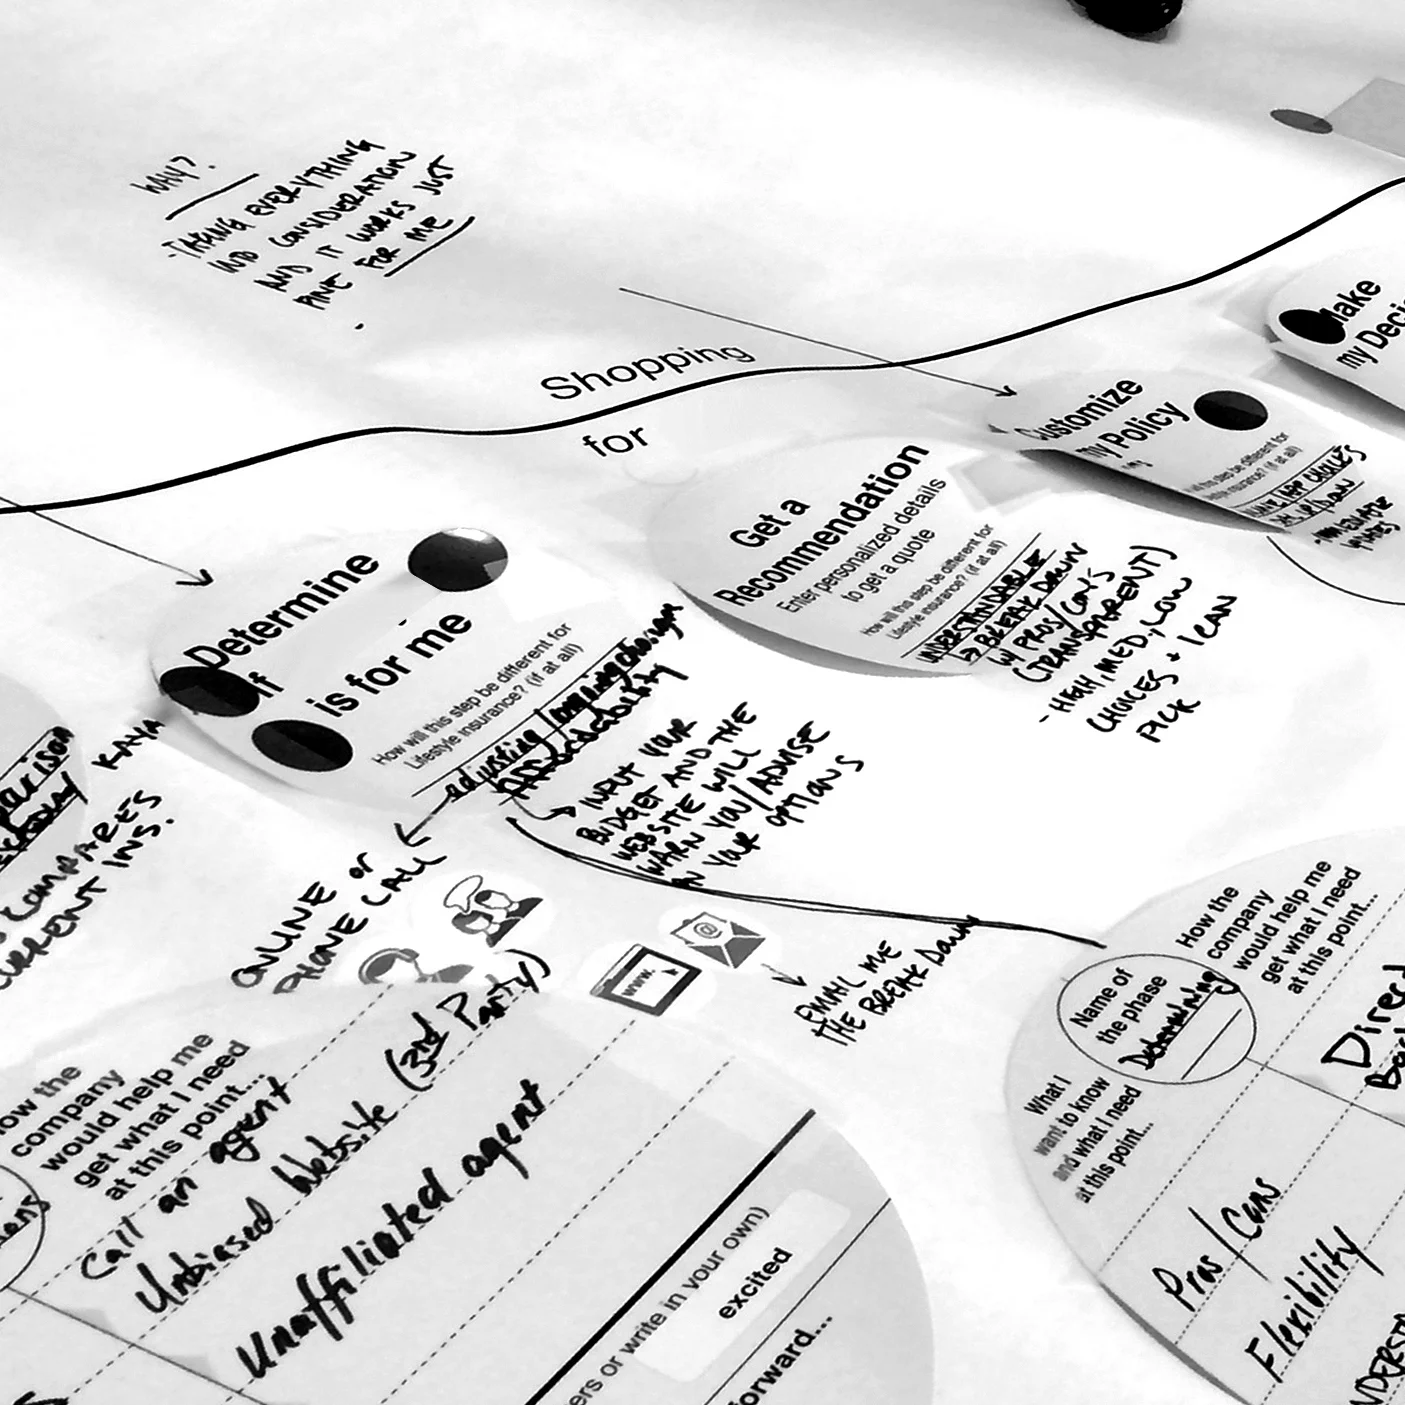 WHY?
- TAKING EVERYTHING
INTO CONSIDERATION
AND IT WORKS JUST
FINE FOR ME
Shopping
for
Make
my Deci
Customize
my Policy
Get a
Recommendation
Enter personalized details
to get a quote
How will this step be different for
Lifestyle insurance? (if at all)
UNDERSTANDABLE
→ BREAK DOWN
W/ PROS/CON'S
(TRANSPARENT)
- HIGH, MED, LOW
CHOICES + I CAN
PICK
Determine
if
is for me
How will this step be different for
Lifestyle insurance? (if at all)
adjusting /
Affordability
→ INPUT YOUR
BUDGET AND THE
WEBSITE WILL
WARN YOU/ADVISE
ON YOUR OPTIONS
KAYA
COMPARES
CURRENT INS.
ONLINE or
PHONE CALL
WWW.
@
EMAIL ME
THE BREAK DOWN
How the
company
would help me
get what I need
at this point...
Call an agent
Unbiased Website (3rd Party)
Unaffiliated agent
ers or write in your own)
excited
forward...
Name of
the phase
Determining
How the
company
would help me
get what I need
at this point...
Direct
What I
want to know
and what I need
at this point...
Pros/Cons
Flexibility